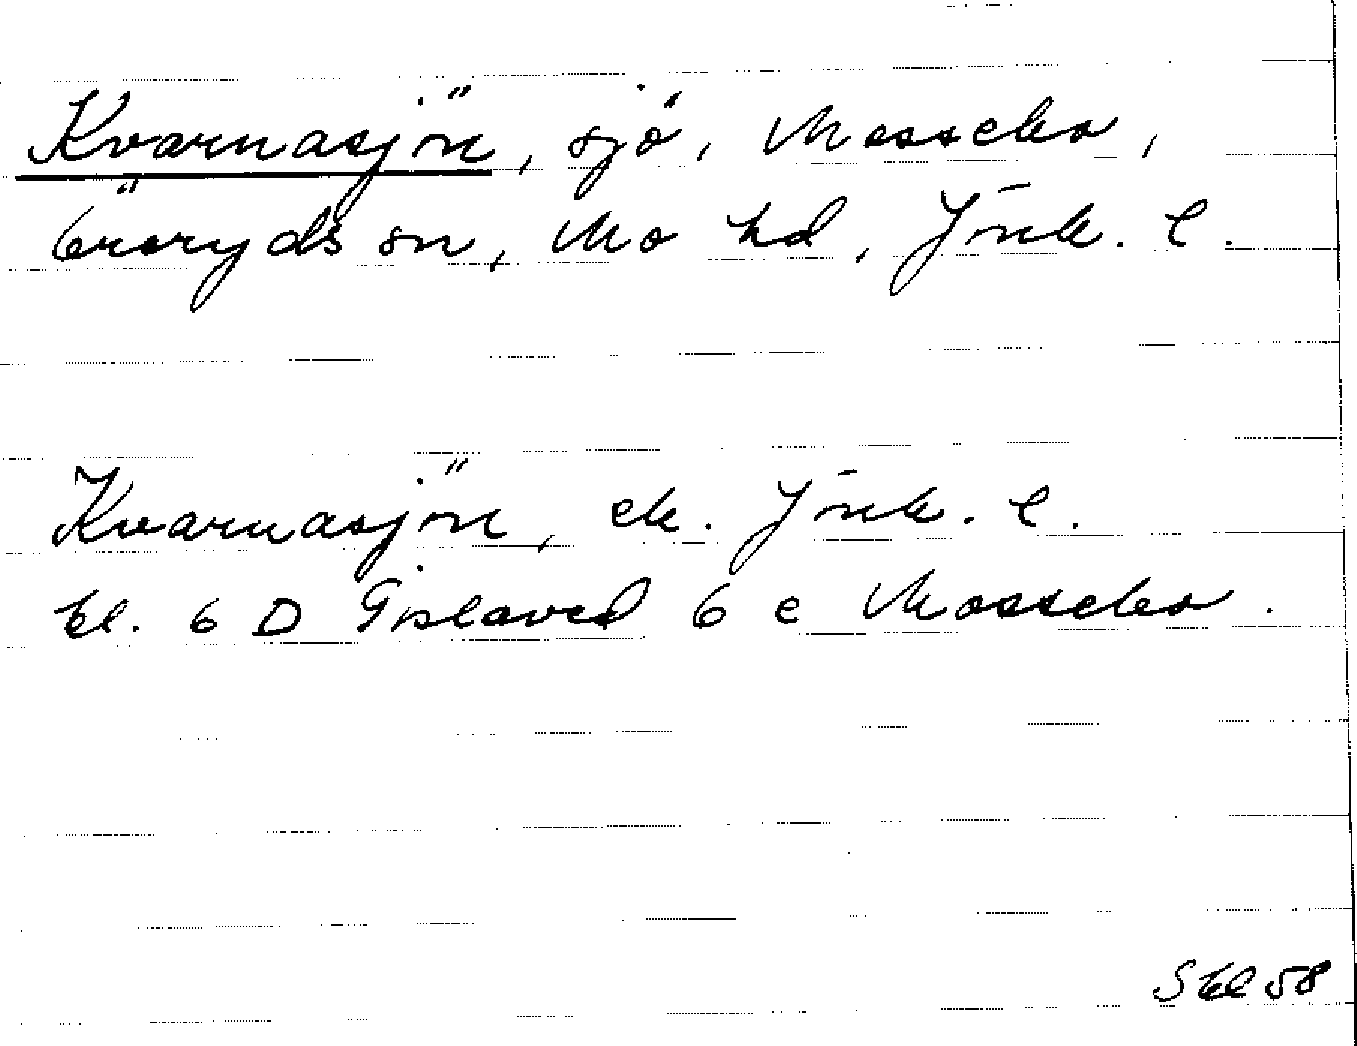 Kvarnasjön, sjö, Mossebo,
Öreryds sn, Mo hd, Jönk. l.
Kvarnasjön, ek. Jönk. l.
bl. 6 D Gislaved 6 e Mossebo.
Skl 58